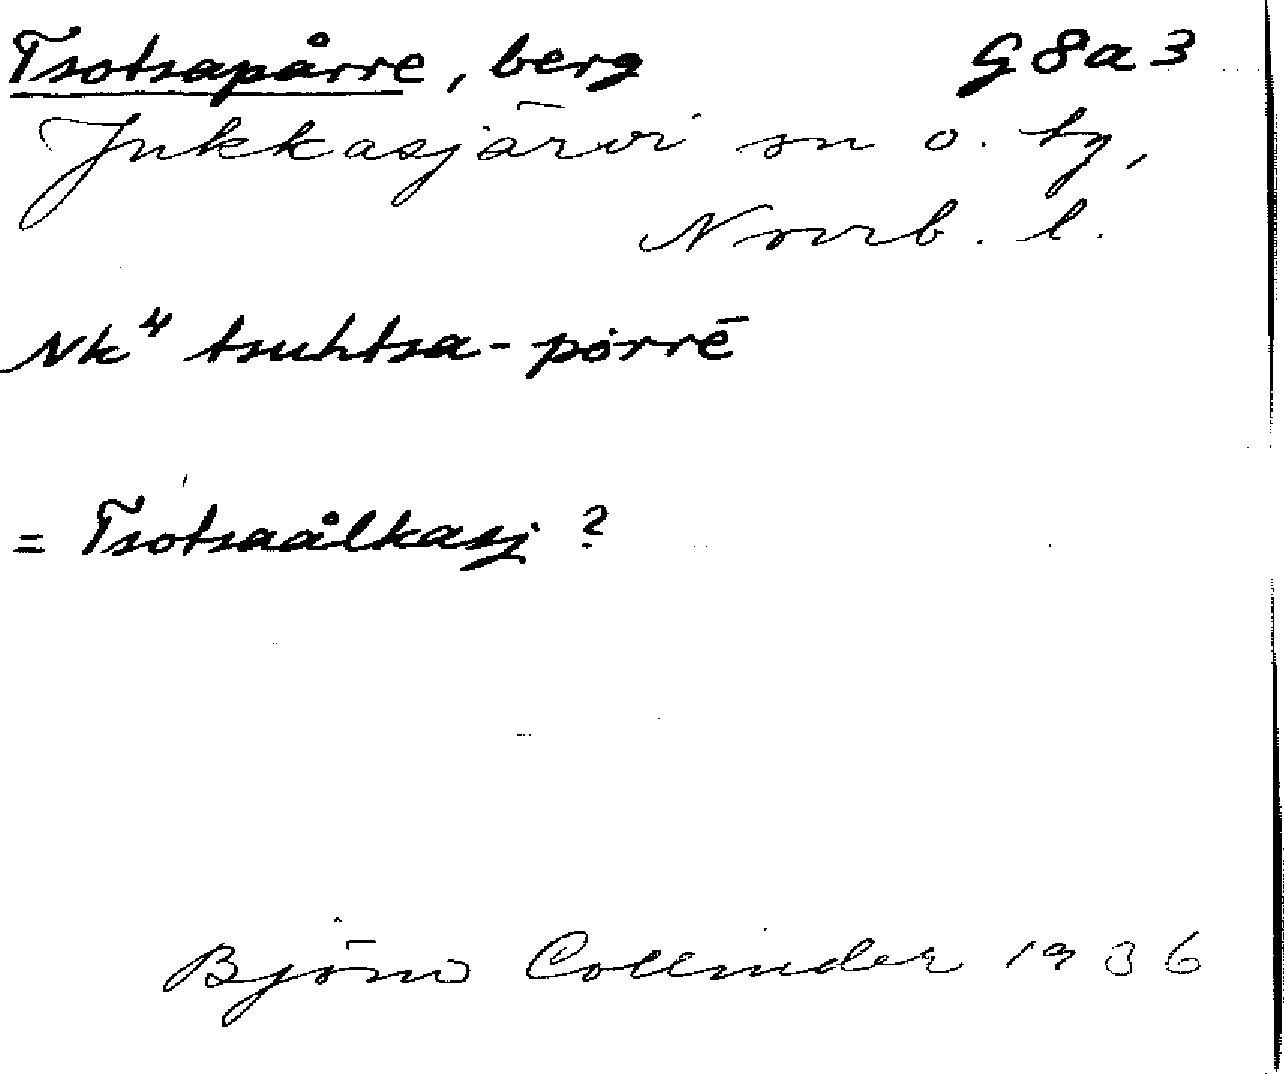 Tsotsapårre, berg G8a3
Jukkasjärvi sn o. tg,
Norrb. l.
Nk⁴ tsuhtsa-pȯrrē
= Tsotsaålkasj ?
Björn Collinder 1936